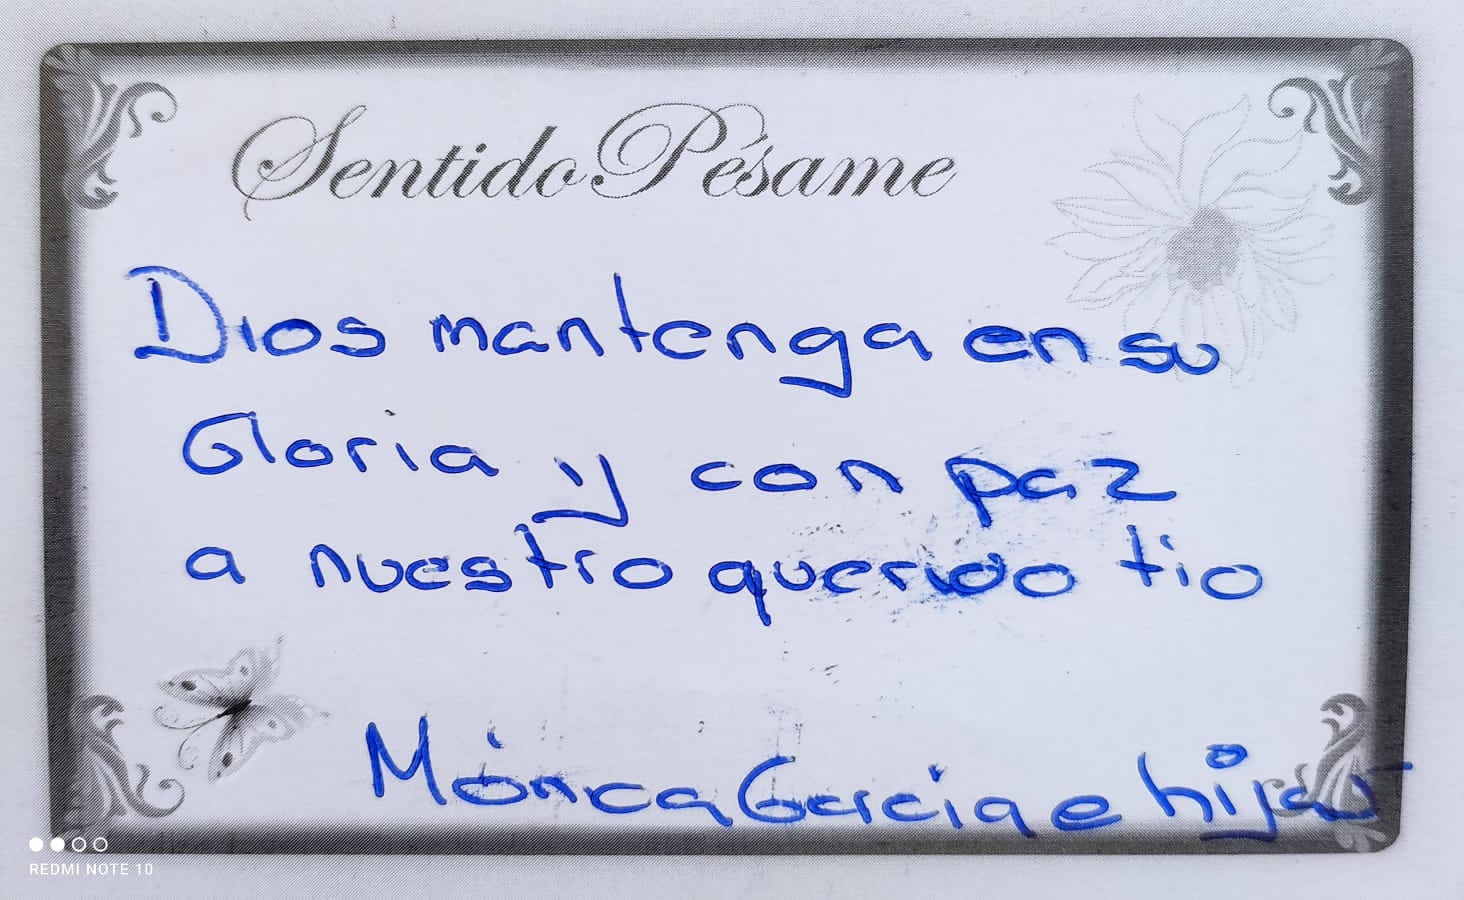 Sentido Pésame
Dios mantenga en su
Gloria y con paz
a nuestro querido tio
Mónica Garcia e hijas
REDMI NOTE 10